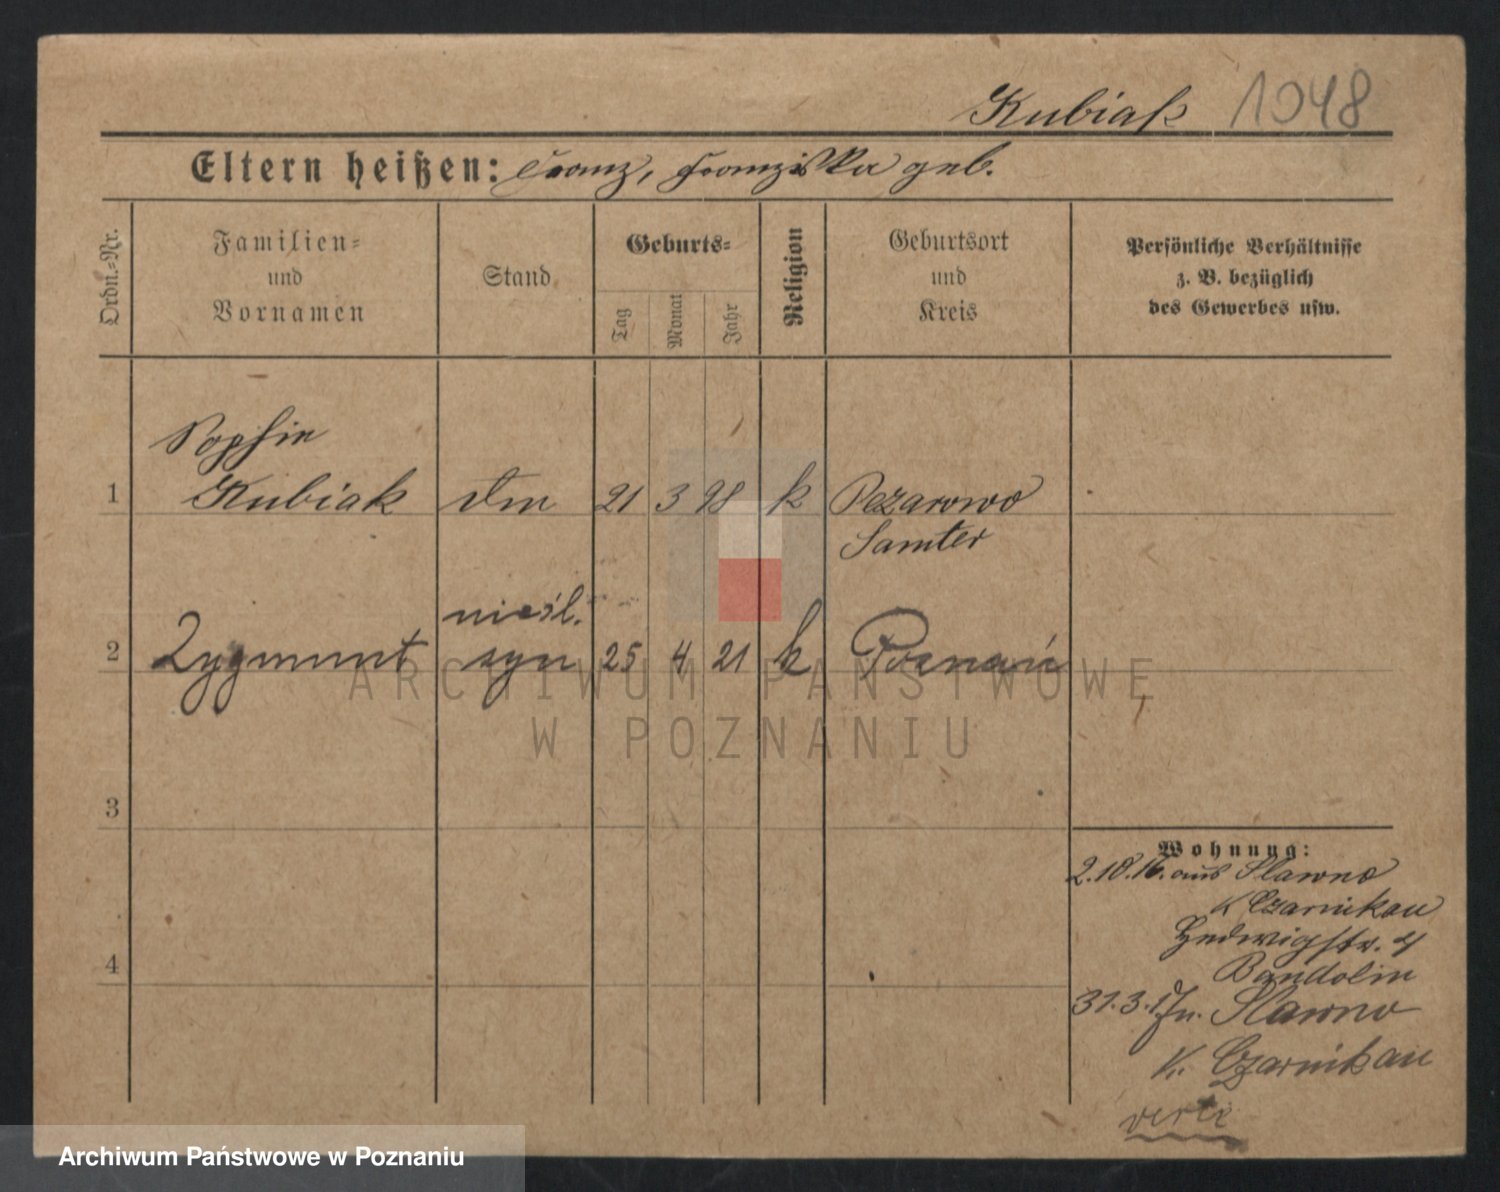 Kubiak 1048
Eltern heißen: Franz, Franziska geb.
Ordn.-Nr.
Familien-
und
Vornamen
Stand
Geburts-
Tag
Monat
Jahr
Religion
Geburtsort
und
Kreis
Persönliche Verhältnisse
z. B. bezüglich
des Gewerbes usw.
Sophie
1 Kubiak 21 3 98 k Pezarowo
Samter
nieśl.
2 Zygmunt syn 25 4 21 k Poznań
3
4
Wohnung:
2.10.16. aus Slawno
K Czarnikau
Hedwigstr. 4
Bandolin
31.3.17. n. Slawno
K. Czarnikau
verte
ARCHIWUM PAŃSTWOWE
W POZNANIU
Archiwum Państwowe w Poznaniu